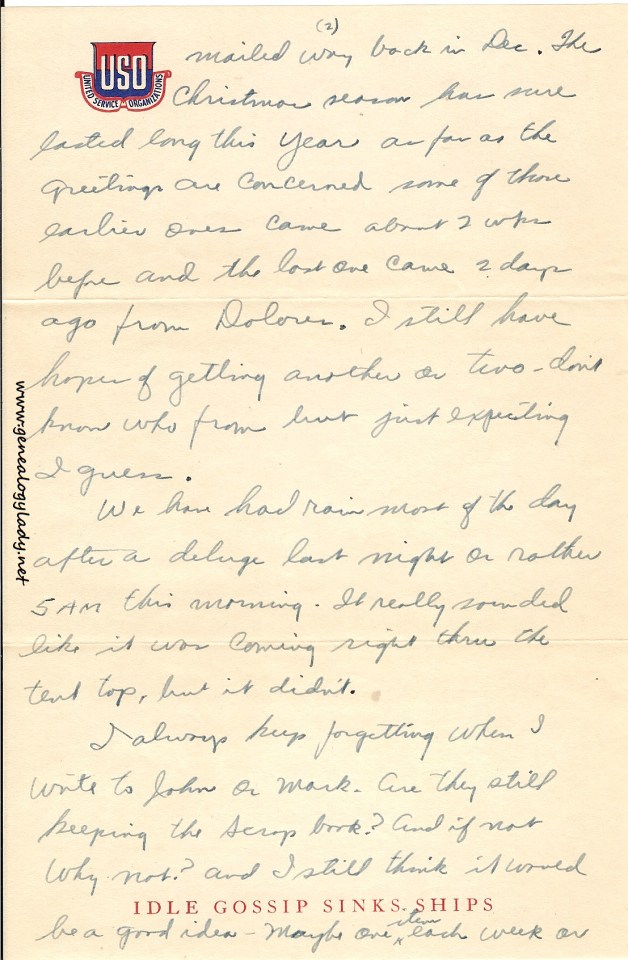 (2)
USO
UNITED SERVICE ORGANIZATIONS
mailed way back in Dec. The
Christmas season has sure
lasted long this year as far as the
greetings are concerned some of those
earlier ones came about 2 wks
before and the last one came 2 days
ago from Dolores. I still have
hopes of getting another or two - don't
know who from but just expecting
I guess.
We have had rain most of the day
after a deluge last night or rather
5 AM this morning. It really sounded
like it was coming right thru the
tent top, but it didn't.
I always keep forgetting when I
write to John or Mark. Are they still
keeping the scrap book? And if not
why not? and I still think it would
IDLE GOSSIP SINKS SHIPS
be a good idea - Maybe one item each week or
www.genealogylady.net